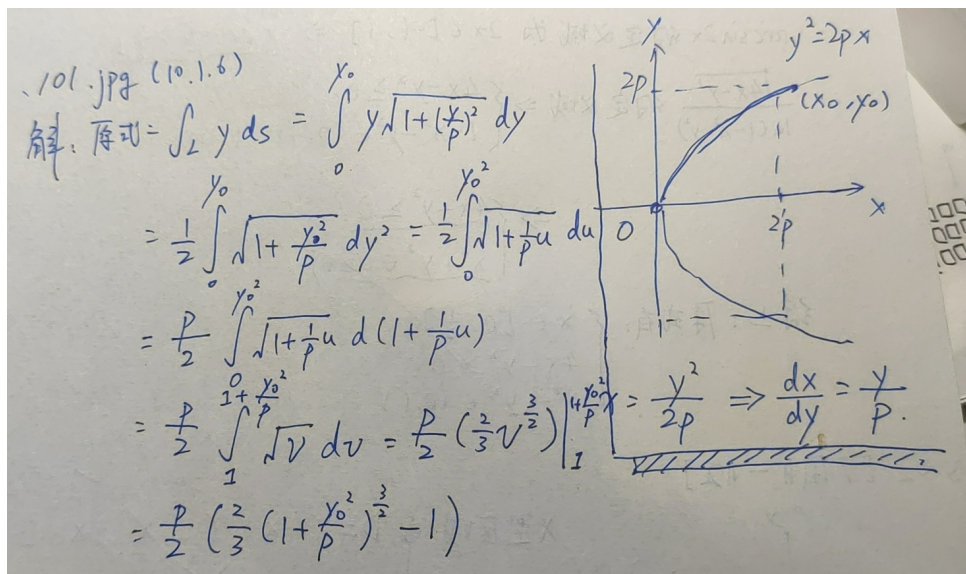 .101.jpg (10.1.6)
解: 原式 = ∫_L y ds = ∫_0^{y₀} y√(1+(y/p)²) dy
= 1/2 ∫_0^{y₀} √(1+y₀²/p) dy² = 1/2 ∫_0^{y₀²} √(1+1/p u) du
= p/2 ∫_0^{y₀²} √(1+1/p u) d(1+1/p u)
= p/2 ∫_1^{1+y₀²/p} √v dv = p/2 (2/3 v^{3/2}) |_1^{1+y₀²/p}
= p/2 (2/3 (1+y₀²/p)^{3/2} - 1)
y
y²=2px
2p
(x₀,y₀)
x
0
2p
x = y²/2p ⇒ dx/dy = y/p.